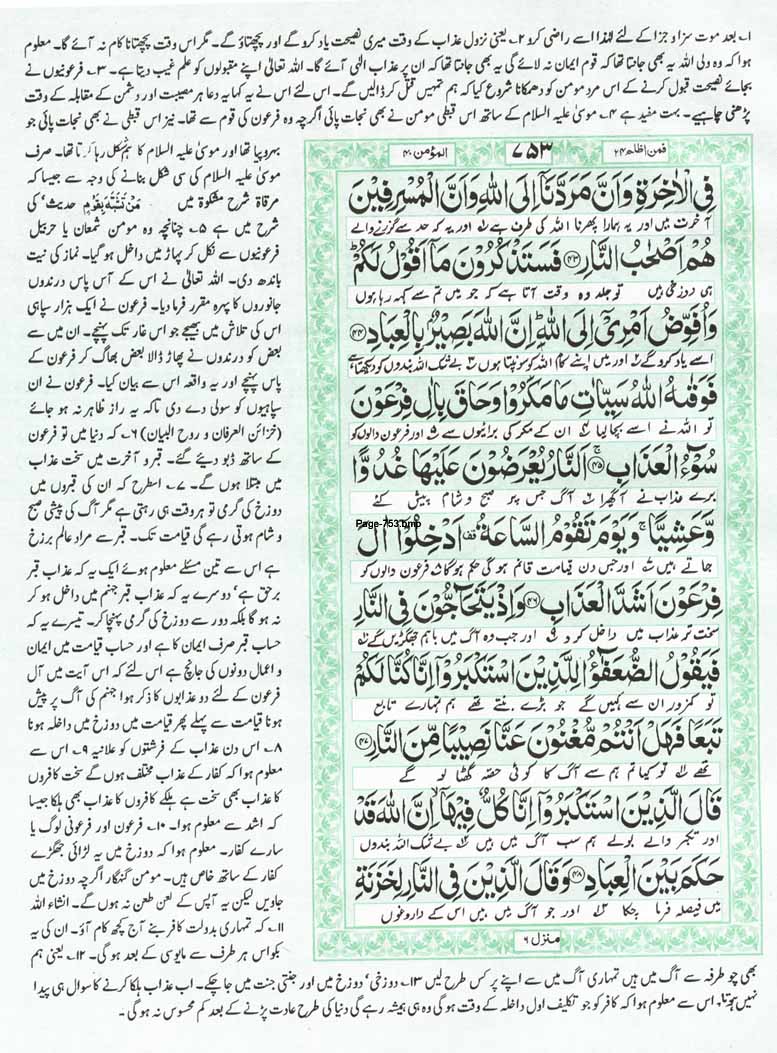 ۱؎ بعد موت سزا و جزا کے لئے لہٰذا اسے راضی کرو ۲؎ یعنی نزول عذاب کے وقت میری نصیحت یاد کرو گے اور پچھتاؤ گے۔ مگر اس وقت پچھتانا کام نہ آئے گا۔ معلوم
ہوا کہ وہ ولی اللہ یہ بھی جانتا تھا کہ قوم ایمان نہ لائے گی یہ بھی جانتا تھا کہ ان پر عذاب الٰہی آئے گا۔ اللہ تعالیٰ اپنے مقبولوں کو علم غیب دیتا ہے۔ ۳؎ فرعونیوں نے
بجائے نصیحت قبول کرنے کے اس مرد مومن کو دھمکانا شروع کیا کہ ہم تمہیں قتل کر ڈالیں گے۔ اس لئے اس نے یہ کہا یہ دعا ہر مصیبت اور دشمن کے مقابلہ کے وقت
پڑھنی چاہیے۔ بہت مفید ہے ۴؎ موسیٰ علیہ السلام کے ساتھ اس قبطی مومن نے بھی نجات پائی اگرچہ وہ فرعون کی قوم سے تھا۔ نیز اس قبطی نے بھی نجات پائی جو
فمن اظلم ۲۴
۷۵۳
المؤمن ۴۰
فِی الْاٰخِرَةِ وَاَنَّ مَرَدَّنَاۤ اِلَی اللّٰهِ وَاَنَّ الْمُسْرِفِیْنَ
آخرت میں اور یہ ہمارا پھرنا اللہ کی طرف ہے اور یہ کہ حد سے گزرنے والے
هُمْ اَصْحٰبُ النَّارِ ﴿۴۳﴾ فَسَتَذْكُرُوْنَ مَاۤ اَقُوْلُ لَكُمْ
ہی دوزخی ہیں تو جلد وہ وقت آتا ہے کہ جو میں تم سے کہہ رہا ہوں
وَاُفَوِّضُ اَمْرِیْۤ اِلَی اللّٰهِ اِنَّ اللّٰهَ بَصِیْرٌۢ بِالْعِبَادِ ﴿۴۴﴾
اسے یاد کرو گے ۲؎ اور میں اپنے کام اللہ کو سونپتا ہوں ۳؎ بے شک اللہ بندوں کو دیکھتا ہے
فَوَقٰىهُ اللّٰهُ سَیِّاٰتِ مَا مَكَرُوْا وَحَاقَ بِاٰلِ فِرْعَوْنَ
تو اللہ نے اسے بچا لیا ۴؎ ان کے مکر کی برائیوں سے ۵؎ اور فرعون والوں کو
سُوْٓءُ الْعَذَابِ ﴿۴۵﴾ اَلنَّارُ یُعْرَضُوْنَ عَلَیْهَا غُدُوًّا
برے عذاب نے آ گھیرا ۶؎ آگ جس پر صبح و شام پیش کئے
وَّعَشِیًّا وَیَوْمَ تَقُوْمُ السَّاعَةُ اَدْخِلُوْۤا اٰلَ
Page-753.bmp
جاتے ہیں ۷؎ اور جس دن قیامت قائم ہوگی حکم ہوگا ۸؎ فرعون والوں کو
فِرْعَوْنَ اَشَدَّ الْعَذَابِ ﴿۴۶﴾ وَاِذْ یَتَحَآجُّوْنَ فِی النَّارِ
سخت تر عذاب میں داخل کرو ۹؎ اور جب وہ آگ میں باہم جھگڑیں گے ۱۰؎
فَیَقُوْلُ الضُّعَفٰٓؤُا لِلَّذِیْنَ اسْتَكْبَرُوْۤا اِنَّا كُنَّا لَكُمْ
تو کمزور ان سے کہیں گے جو بڑے بنتے تھے ہم تمہارے تابع
تَبَعًا فَهَلْ اَنْتُمْ مُّغْنُوْنَ عَنَّا نَصِیْبًا مِّنَ النَّارِ ﴿۴۷﴾
تھے ۱۱؎ تو کیا تم ہم سے آگ کا کوئی حصہ گھٹا لو گے
قَالَ الَّذِیْنَ اسْتَكْبَرُوْۤا اِنَّا كُلٌّ فِیْهَاۤ اِنَّ اللّٰهَ قَدْ
اور تکبر والے بولے ہم سب آگ میں ہیں ۱۲؎ بے شک اللہ بندوں
حَكَمَ بَیْنَ الْعِبَادِ ﴿۴۸﴾ وَقَالَ الَّذِیْنَ فِی النَّارِ لِخَزَنَةِ
میں فیصلہ فرما چکا ۱۳؎ اور جو آگ میں ہیں اس کے داروغوں
منزل ۶
بہروپیا تھا اور موسیٰ علیہ السلام کا ہم شکل رہا کرتا تھا۔ صرف
موسیٰ علیہ السلام کی سی شکل بنانے کی وجہ سے جیسا کہ
مرقاۃ شرح مشکوٰۃ میں مَنْ تَشَبَّهَ بِقَوْمٍ حدیث کی
شرح میں ہے ۵؎ چنانچہ وہ مومن شمعان یا حزبیل
فرعونیوں سے نکل کر پہاڑ میں داخل ہوگیا۔ نماز کی نیت
باندھ دی۔ اللہ تعالیٰ نے اس کے آس پاس درندوں
جانوروں کا پہرہ مقرر فرما دیا۔ فرعون نے ایک ہزار سپاہی
اس کی تلاش میں بھیجے جو اس غار تک پہنچے۔ ان میں سے
بعض کو درندوں نے پھاڑ ڈالا بعض بھاگ کر فرعون کے
پاس پہنچے اور یہ واقعہ اس سے بیان کیا۔ فرعون نے ان
سپاہیوں کو سولی دے دی تاکہ یہ راز ظاہر نہ ہو جائے
(خزائن العرفان و روح البیان) ۶؎ کہ دنیا میں تو فرعون
کے ساتھ ڈبو دیئے گئے۔ قبر و آخرت میں سخت عذاب
میں مبتلا ہوں گے۔ ۷؎ اسطرح کہ ان کی قبروں میں
دوزخ کی گرمی تو ہر وقت ہی رہتی ہے مگر آگ کی پیشی صبح
و شام ہوتی رہے گی قیامت تک۔ قبر سے مراد عالم برزخ
ہے اس سے تین مسئلے معلوم ہوئے ایک یہ کہ عذاب قبر
برحق ہے، دوسرے یہ کہ عذاب قبر جہنم میں داخل ہو کر
نہ ہو گا بلکہ دور سے دوزخ کی گرمی پہنچا کر۔ تیسرے یہ کہ
حساب قبر صرف ایمان کا ہے اور قیامت میں حساب ایمان
و اعمال دونوں کی جانچ ہے اس لئے کہ اس آیت میں آل
فرعون کے لئے دو عذابوں کا ذکر ہوا جہنم کی آگ پر پیش
ہونا قیامت سے پہلے پھر قیامت میں دوزخ میں داخلہ ہونا
۸؎ اس دن عذاب کے فرشتوں کو علانیہ ۹؎ اس سے
معلوم ہوا کہ کفار کے عذاب مختلف ہوں گے سخت کافروں
کا عذاب بھی سخت ہے ہلکے کافروں کا عذاب بھی ہلکا جیسا
کہ اشد سے معلوم ہوا۔ ۱۰؎ فرعون اور فرعونی لوگ یا
سارے کفار۔ معلوم ہوا کہ دوزخ میں یہ لڑائی جھگڑے
کفار کے ساتھ خاص ہیں۔ مومن گنہگار اگرچہ دوزخ میں
جاویں لیکن یہ آپس کے لعن طعن نہ ہوں گے۔ انشاء اللہ
۱۱؎ کہ تمہاری بدولت کافر بنے آج کچھ کام آؤ۔ ان کی یہ
بکواس ہر طرف سے مایوسی کے بعد ہو گی۔ ۱۲؎ یعنی ہم
بھی چو طرفہ سے آگ میں ہیں تمہاری آگ میں سے اپنے پر کس طرح لیں ۱۳؎ دوزخی دوزخ میں اور جنتی جنت میں جا چکے۔ اب عذاب ہلکا کرنے کا سوال ہی پیدا
نہیں ہوتا۔ اس سے معلوم ہوا کہ کافر کو جو تکلیف اول داخلہ کے وقت ہوگی وہ ہی ہمیشہ رہے گی دنیا کی طرح عادت پڑنے کے بعد کم محسوس نہ ہوگی۔